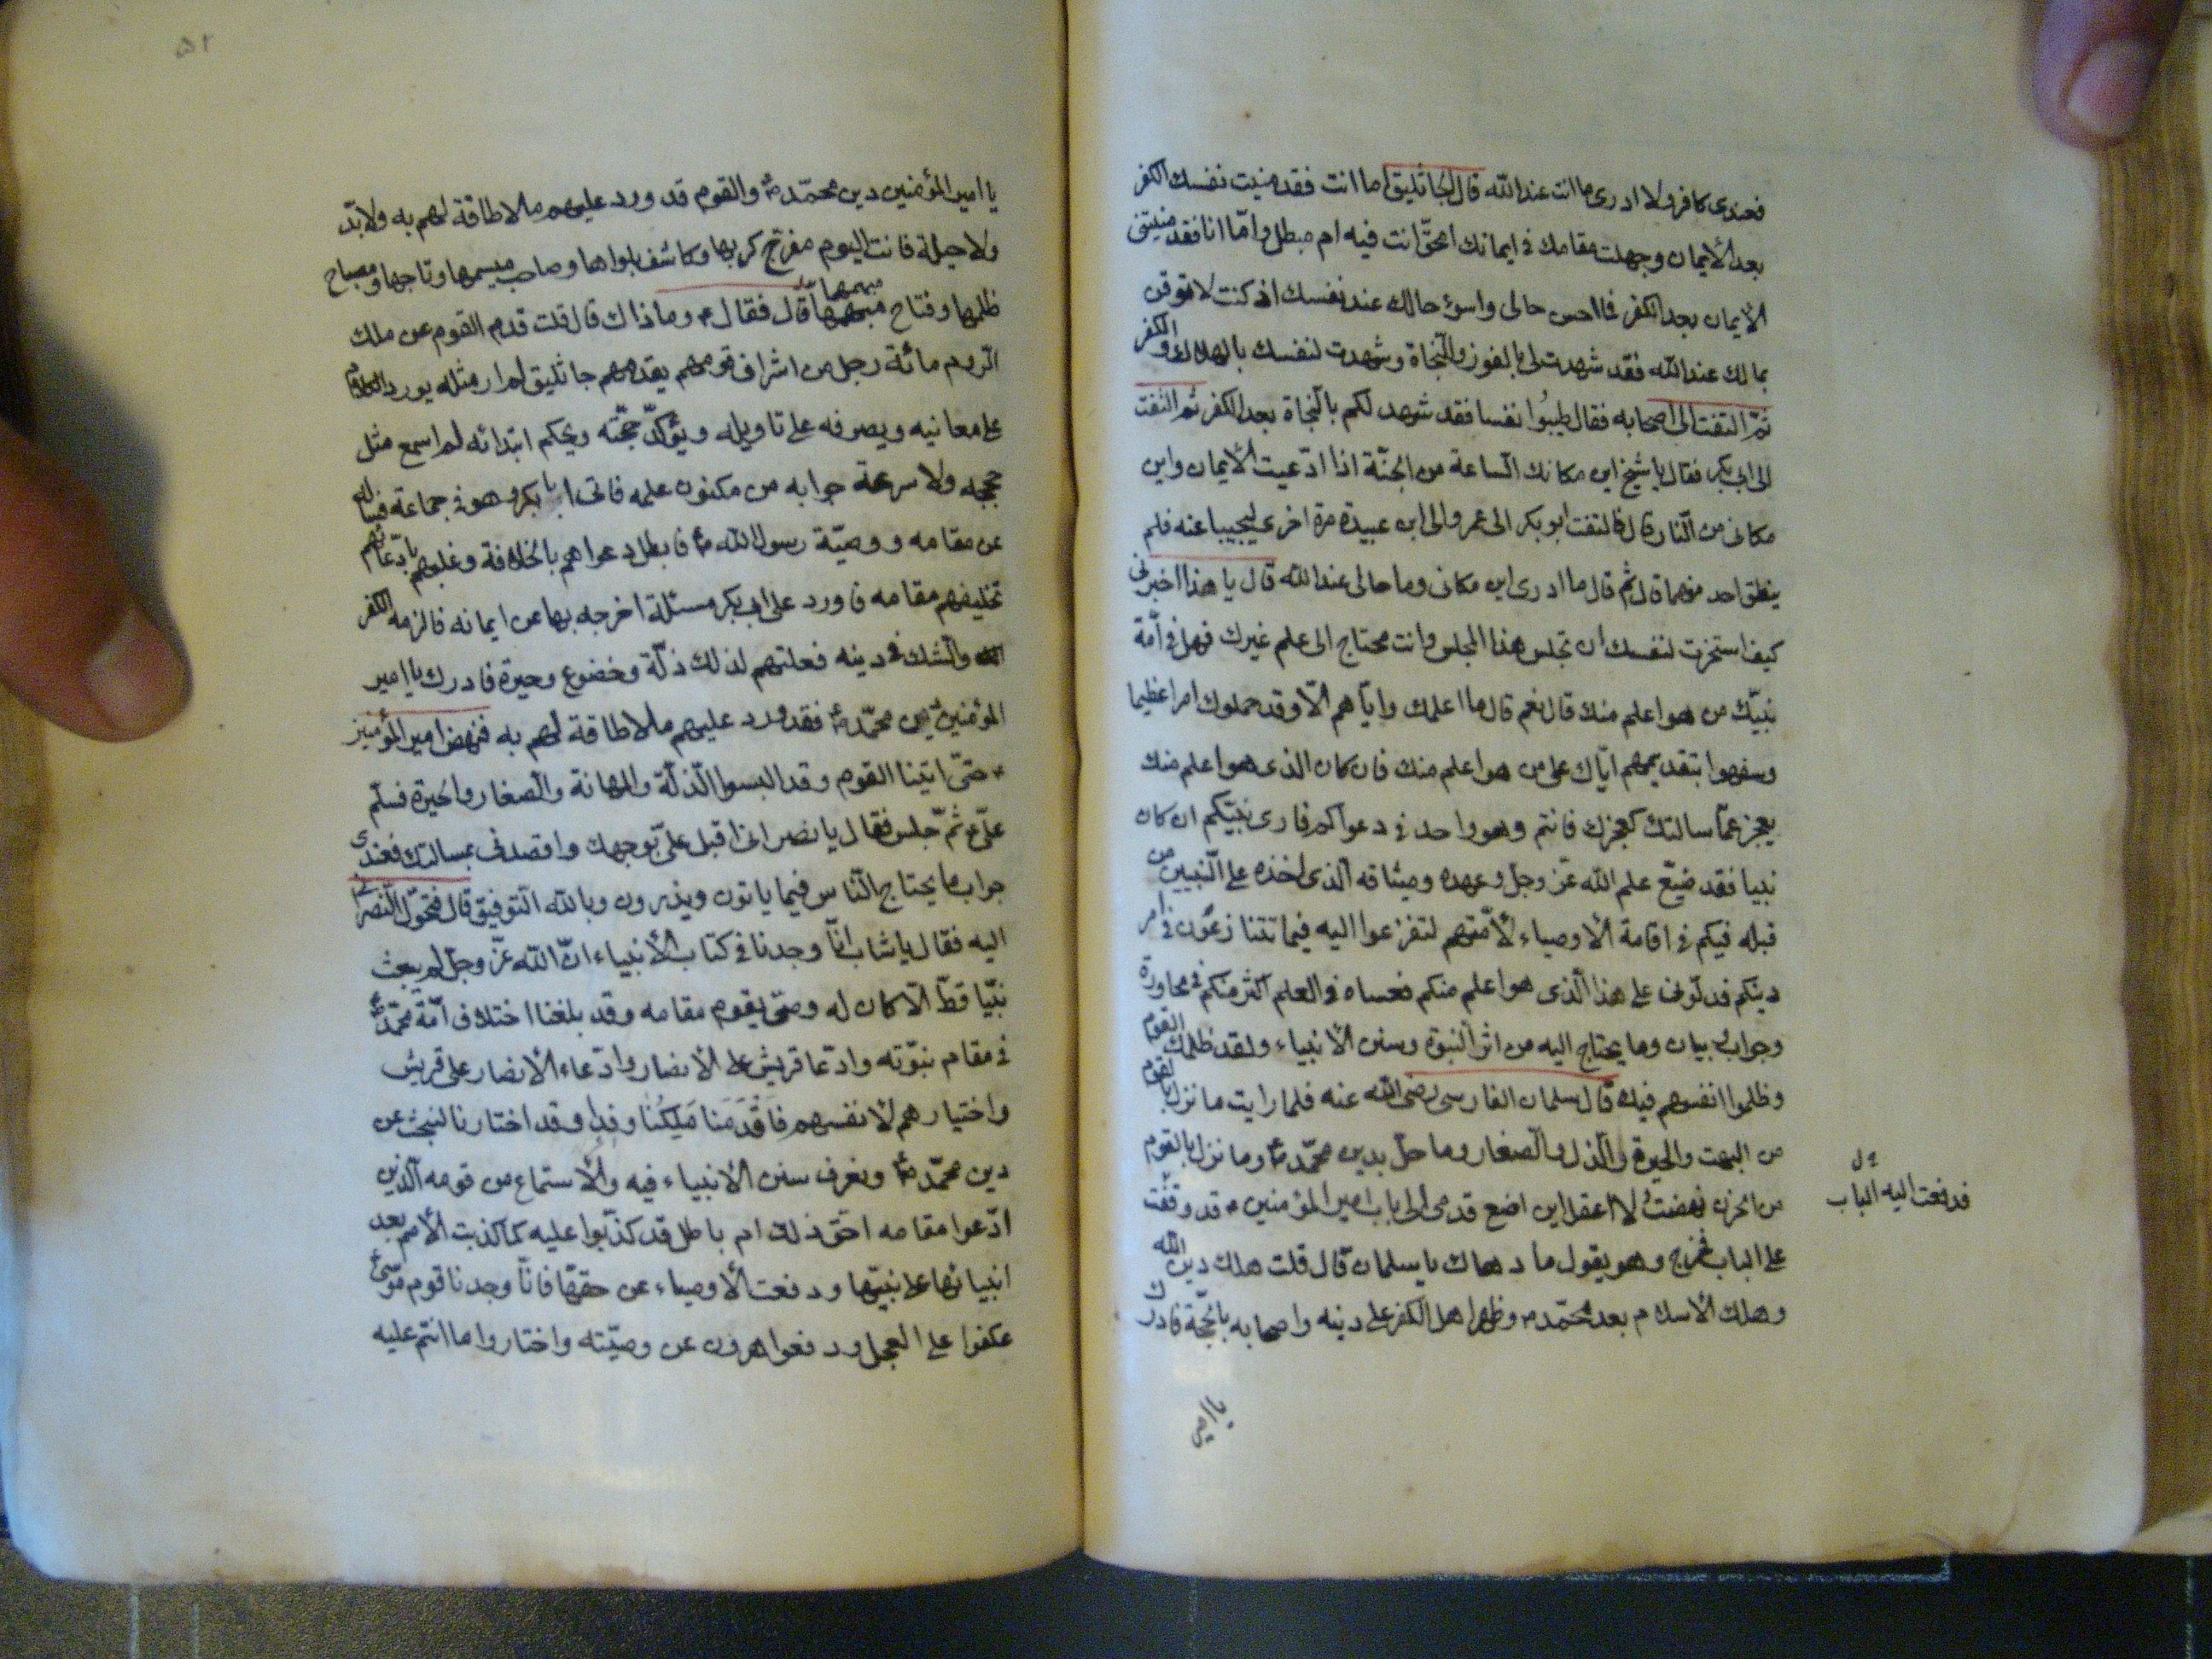 فعندى كافر ولا ادرى ما انت عند الله قال الجاثليق اما انت فقد منيت نفسك الكفر
بعد الأيمان وجهلت مقامك فى ايمانك امحقّ انت فيه ام مبطل وامّا انا فقد منيتنى
الأيمان بعد الكفر فما احسن حالى واسوء حالك عند نفسك اذ كنت لا توقن
بما لك عند الله فقد شهدت لى بالفوز والنّجاة وشهدت لنفسك بالهلاك والكفر
ثمّ التفت الى اصحابه فقال طيبُوا نفسا فقد شهد لكم بالنّجاة بعد الكفر ثم التفت
الى ابى بكر فقال يا شيخ اين مكانك السّاعة من الجنّة اذا ادّعيت الأيمان واين
مكانى من النّار قال فالتفت ابو بكر الى عمر والى ابى عبيدة مرة اخرى ليجيبا عنه فلم
ينطق احد منهما قال ثم قال ما ادرى اين مكانى وما حالى عند الله قال يا هذا اخبرنى
كيف استخرت لنفسك ان تجلس هذا المجلس وانت محتاج الى علم غيرك فهل فى امّة
نبيّك من هو اعلم منك قال نعم قال ما اعلمك وايّاهم الّا وقد حملوك امرا عظيما
وسفهوا بتقديمهم ايّاك على من هو اعلم منك فان كان الذى هو اعلم منك
يعجز عمّا سالتك كعجزك فانتم وهو واحد فى دعواكم فارى نبيّكم ان كان
نبيا فقد ضيّع علم الله عزّ وجلّ وعهده وميثاقه الّذى اخذه على النّبيين من
قبله فيكم فى اقامة الاوصياء لأمّتهم لتفزعوا اليه فيما تتنازعون فى امر
دينكم فدلّونى على هذا الّذى هو اعلم منكم فعساه فى العلم اكثر منكم فى محاورة
وجواب وبيان وما يحتاج اليه من اثر النّبوة وسنن الأنبياء ولقد ظلمك القوم
وظلموا انفسهم فيك قال سلمان الفارسى رضى الله عنه فلما رايت ما نزل بالقوم
من البهت والحيرة والذّل والصّغار وما حلّ بدين محمّد ص وما نزل بالقوم
من الحزن نهضتُ لا اعقل اين اضع قدمى الى باب امير المؤمنين ع قد وقفت
فدفعت اليه الباب
على الباب فخرج وهو يقول ما دهاك يا سلمان قال قلت هلك دين الله
وهلك الأسلام بعد محمّد ص وظهر اهل الكفر على دينه واصحابه بالحجّة فادرك
يا امير
يا امير المؤمنين دين محمّد ص والقوم قد ورد عليهم ما لا طاقة لهم به ولا بدّ
ولا حيلة فانت اليوم مفرّج كربها وكاشف بلواها وصاحب ميسمها وتاجها ومصباح
ظلمها وفتاح مبهمها قال فقال ع وما ذاك قال قلت قدم القوم عن ملك
الرّوم مائة رجل من اشراف قومهم يقدمهم جاثليق لم ار مثله يورد الكلام
على معانيه ويصرفه على تاويله ويؤكّد حجّته ويحكم ابتدائه لم اسمع مثل
حججه ولا سرعة جوابه من مكنون علمه فاتى ابا بكر وهو فى جماعة فساله
عن مقامه ووصيّة رسول الله ص فابطل دعواهم بالخلافة وغلبهم بادّعائهم
تخليفهم مقامه فاورد على ابى بكر مسئلة اخرجه بها عن ايمانه فالزمه الكفر
والشّك فى دينه فعلتهم لذلك ذلّة وخضوع وحيرة فادرك يا امير
المؤمنين دين محمّد ص فقد ورد عليهم ما لا طاقة لهم به فنهض امير المؤمنين
ع حتى اتينا القوم وقد البسوا الذّلّة والمهانة والصّغار والحيرة فسلّم
علىّ ع ثمّ جلس فقال يا نصرانى اقبل علىّ بوجهك واقصدنى بمسالتك فعندى
جواب ما يحتاج النّاس فيما ياتون ويذرون وبالله التّوفيق قال فتحوّل النّصرانى
اليه فقال يا شاب انّا وجدنا فى كتاب الأنبياء انّ الله عزّ وجلّ لم يبعث
نبيّا قطّ الّا كان له وصىّ يقوم مقامه وقد بلغنا اختلاف امّة محمّد ص
فى مقام نبوّته وادّعا قريش على الأنصار وادّعاء الأنصار على قريش
واختيارهم لأنفسهم فاقدمنا ملكنا وفدا وقد اختارنا لنبحث عن
دين محمّد ص ونعرف سنن الأنبياء فيه والأستماع من قومه الّذين
ادّعوا مقامه احقّ ذلك ام باطل قد كذّبوا عليه كما كذبت الأمم بعد
انبيائها على نبيّها ودفعت الأوصياء عن حقّها فانّا وجدنا قوم موسى
عكفوا على العجل ودفعوا هرون عن وصيّته واختاروا ما انتم عليه